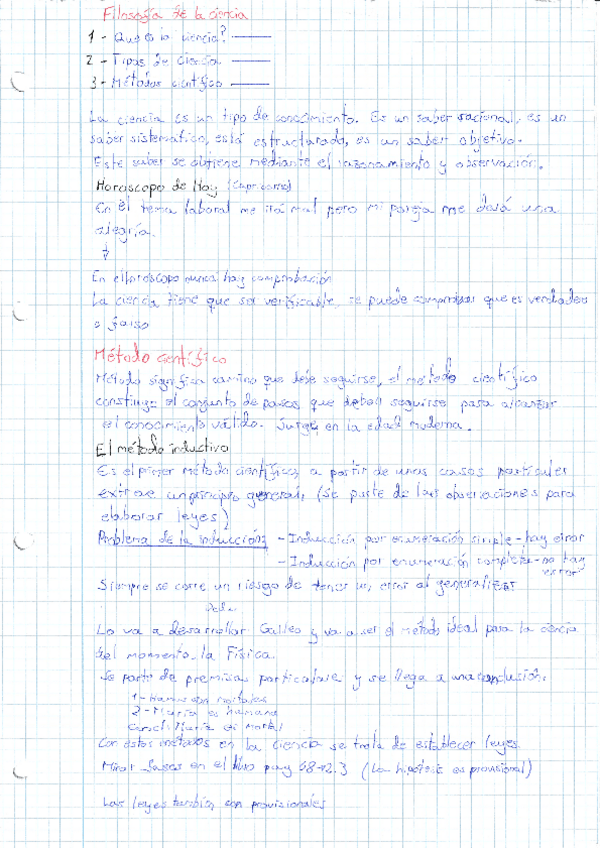 Filosofía de la ciencia
1 - Qué es la ciencia?
2 - Tipos de ciencia.
3 - Métodos científico
La ciencia es un tipo de conocimiento. Es un saber racional, es un
saber sistematico, está estructurado, es un saber objetivo.
Este saber se obtiene mediante el razonamiento y observación.
Horoscopo de Hoy (Capricornio)
En el tema laboral me irá mal pero mi pareja me dará una
alegría.
En el horoscopo nunca hay comprobación
La ciencia tiene que ser verificable, se puede comprobar que es verdadero
o falso
Método científico
Método significa camino que debe seguirse, el método científico
constituye el conjunto de pasos que deben seguirse para alcanzar
el conocimiento válido. Surge en la edad moderna.
El método inductivo
Es el primer método científico, a partir de unos casos particular
extrae un principio general, (se parte de las observaciones para
elaborar leyes)
Problema de la inducción: - Inducción por enumeración simple - hay error
- Inducción por enumeración completa - no hay
error
Siempre se corre un riesgo de tener un error al generalizar
Lo va a desarrollar Galileo y va a ser el método ideal para la ciencia
del momento, la Física.
Se parte de premisas particulares y se llega a una conclusión.
1 - Humanos son mortales
2 - María es humana
Concl: María es mortal
Con estos métodos en la ciencia se trata de establecer leyes
Mirar fases en el libro pag 68-12.3 (La hipótesis es provisional)
Las leyes también son provisionales